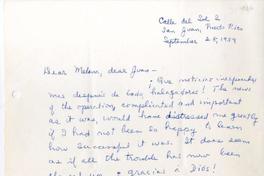 Calle del Sol 2
San Juan, Puerto Rico
September 25, 1959
Dear Malena, dear Juan –
¡Qué noticias inesperadas
mas después de todo halagadoras! The news
of the operation, complicated and important
as it was, would have distressed me greatly
if I had not been so happy to learn
how successful it was. It does seem
as if all the trouble has now been
gracias a Dios!